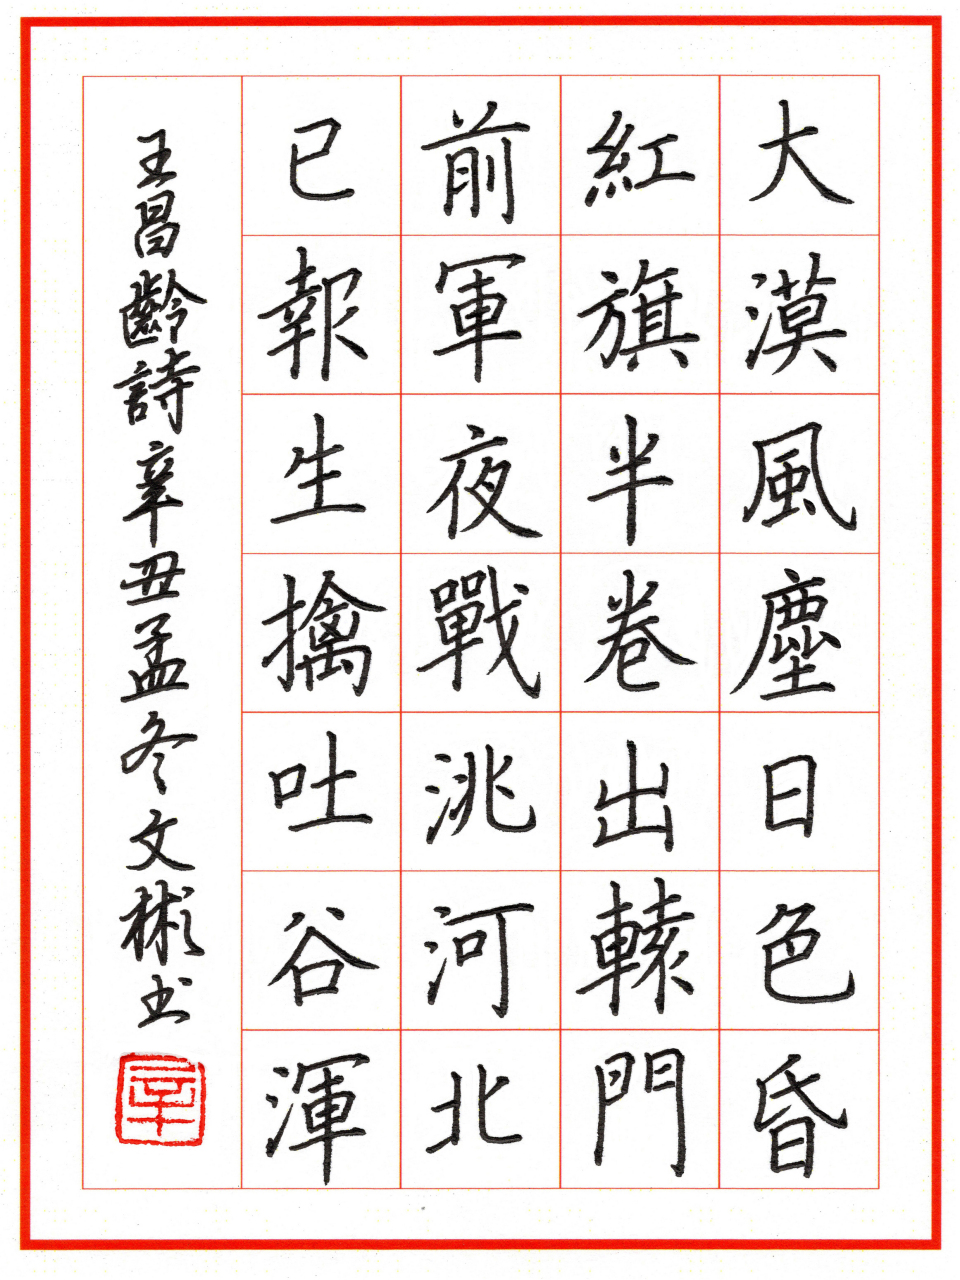 大漠風塵日色昏
紅旗半卷出轅門
前軍夜戰洮河北
已報生擒吐谷渾
王昌齡詩辛丑孟冬文彬书